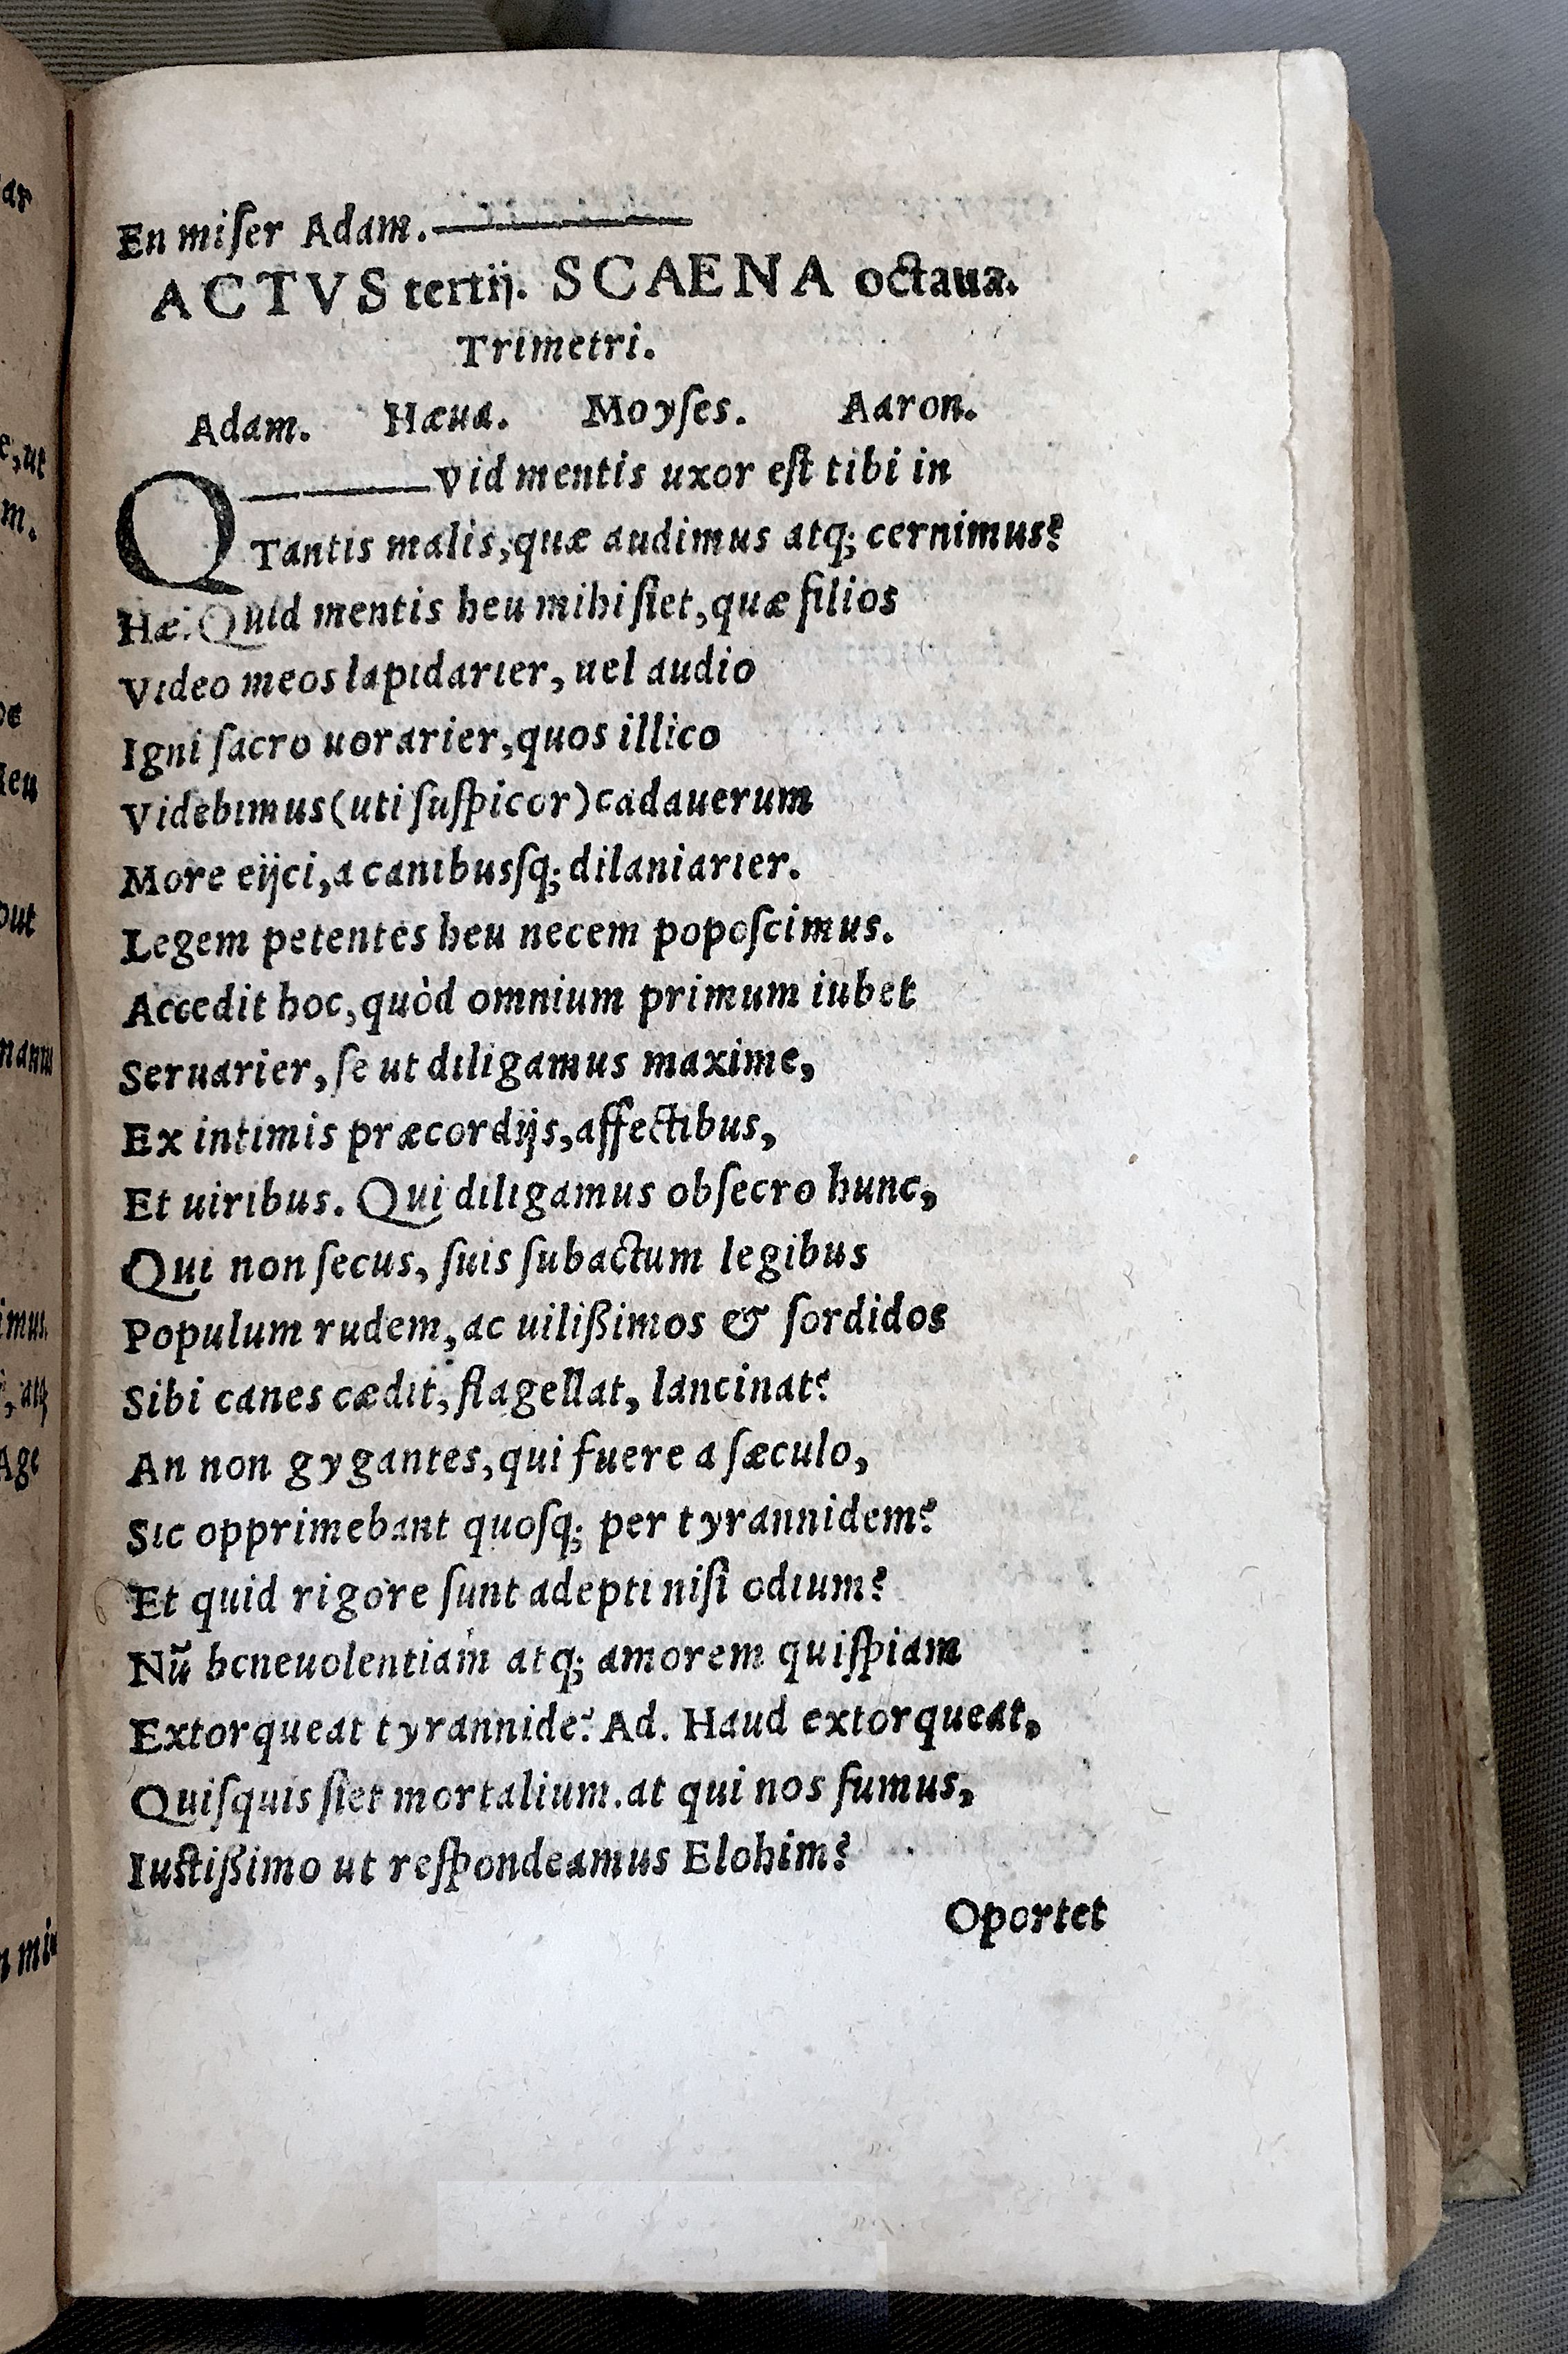 En miſer Adam.
ACTVS tertij. SCAENA octaua.
Trimetri.
Adam. Hæua. Moyſes. Aaron.
QVid mentis uxor eſt tibi in
Tantis malis, quæ audimus atq; cernimus?
Hæ. Quid mentis heu mihi ſiet, quæ filios
Video meos lapidarier, uel audio
Igni ſacro uorarier, quos illico
Videbimus (uti ſuſpicor) cadauerum
More eijci, a canibusſq; dilaniarier.
Legem petentes heu necem popoſcimus.
Accedit hoc, quòd omnium primum iubet
Seruarier, ſe ut diligamus maxime,
Ex intimis præcordijs, affectibus,
Et uiribus. Qui diligamus obſecro hunc,
Qui non ſecus, ſuis ſubactum legibus
Populum rudem, ac uilißimos & ſordidos
Sibi canes cædit, flagellat, lancinat?
An non gygantes, qui fuere a ſæculo,
Sic opprimebant quoſq; per tyrannidem?
Et quid rigore ſunt adepti niſi odium?
Nū beneuolentiam atq; amorem quiſpiam
Extorqueat tyrannide? Ad. Haud extorqueat,
Quiſquis ſiet mortalium. at qui nos fumus,
Iuſtißimo ut reſpondeamus Elohim?
Oportet